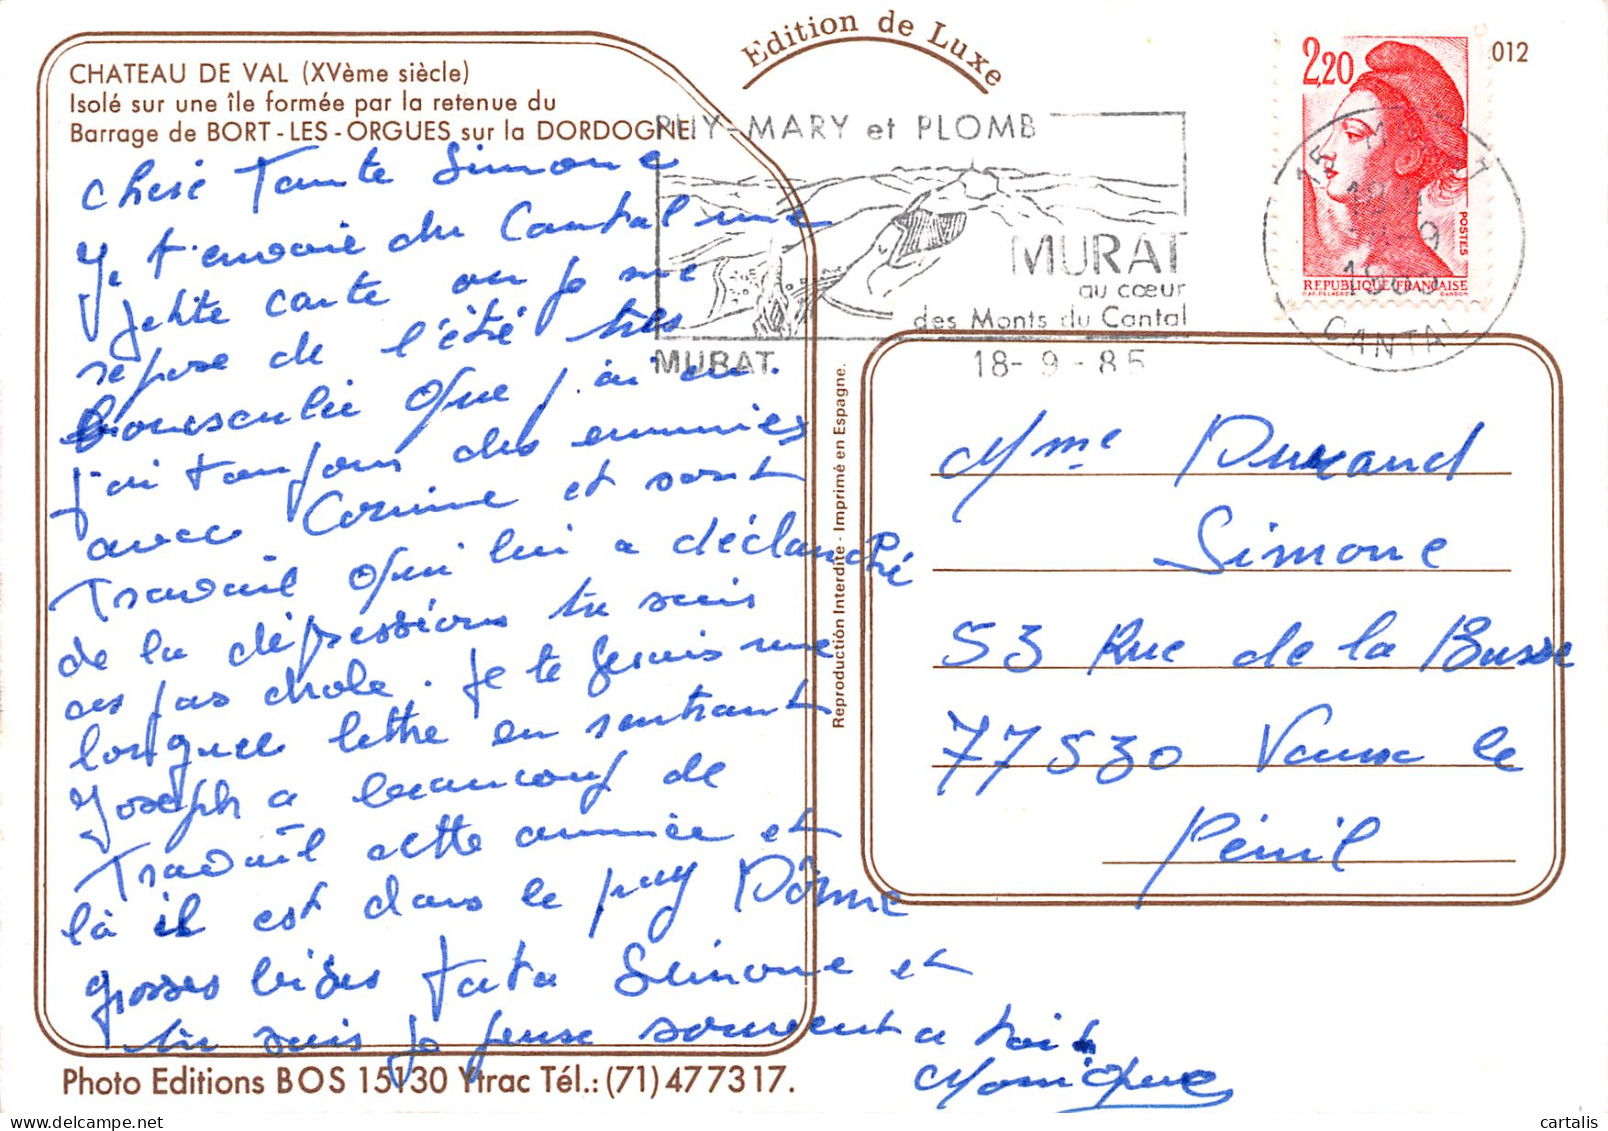 Edition de Luxe
012
CHATEAU DE VAL (XVème siècle)
Isolé sur une île formée par la retenue du
Barrage de BORT-LES-ORGUES sur la DORDOGNE
PUY-MARY et PLOMB
MURAT
au cœur
des Monts du Cantal
MURAT
18-9-85
2,20
POSTES
REPUBLIQUE FRANÇAISE
CANTAL
Cheré Tante Simone
Je t'envoie du Cantal une
petite carte ou je me
repose de l'été très
bousculée que j'ai eu.
J'ai toujours des ennuies
avec Corinne et sont
Travail qui lui a déclanché
de la dépression tu sais
ces pas drole. Je te ferais une
longuee lettre en rentrant
Joseph a beaucoup de
Travail cette année et
là il est dans le puy Dôme
grosses bises Tata Simone et
tu sais je pense souvent a toi
Monique
Reproduction Interdite - Imprimé en Espagne.
Mme Durand
Simone
53 Rue de la Busse
77530 Vaux le
Pénil
Photo Editions BOS 15130 Ytrac Tél.: (71) 477317.
cartalis